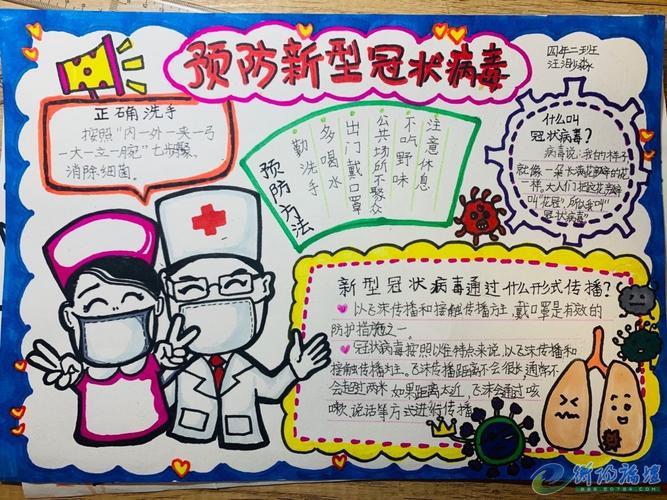 预防新型冠状病毒
四年二班
正确洗手
按照"内一外一夹一弓
一大一立一腕"七步骤、
消除细菌。
预防方法
勤洗手
多喝水
出门戴口罩
公共场所不聚众
不吃野味
注意休息
什么叫
冠状病毒?
病毒说:我的样子
就像一朵长满花瓣的花
一样。大人们把这花瓣
叫"花冠",所以我叫"
冠状病毒"
新型冠状病毒通过什么形式传播?
以飞沫传播和接触传播为主,戴口罩是有效的
防护措施之一。
冠状病毒按照以往特点来说,以飞沫传播和
接触传播为主。飞沫传播距离不会很长,通常不
会超过两米,如果距离太近,飞沫会通过咳
嗽、说话等方式进行传播
衡阳论坛